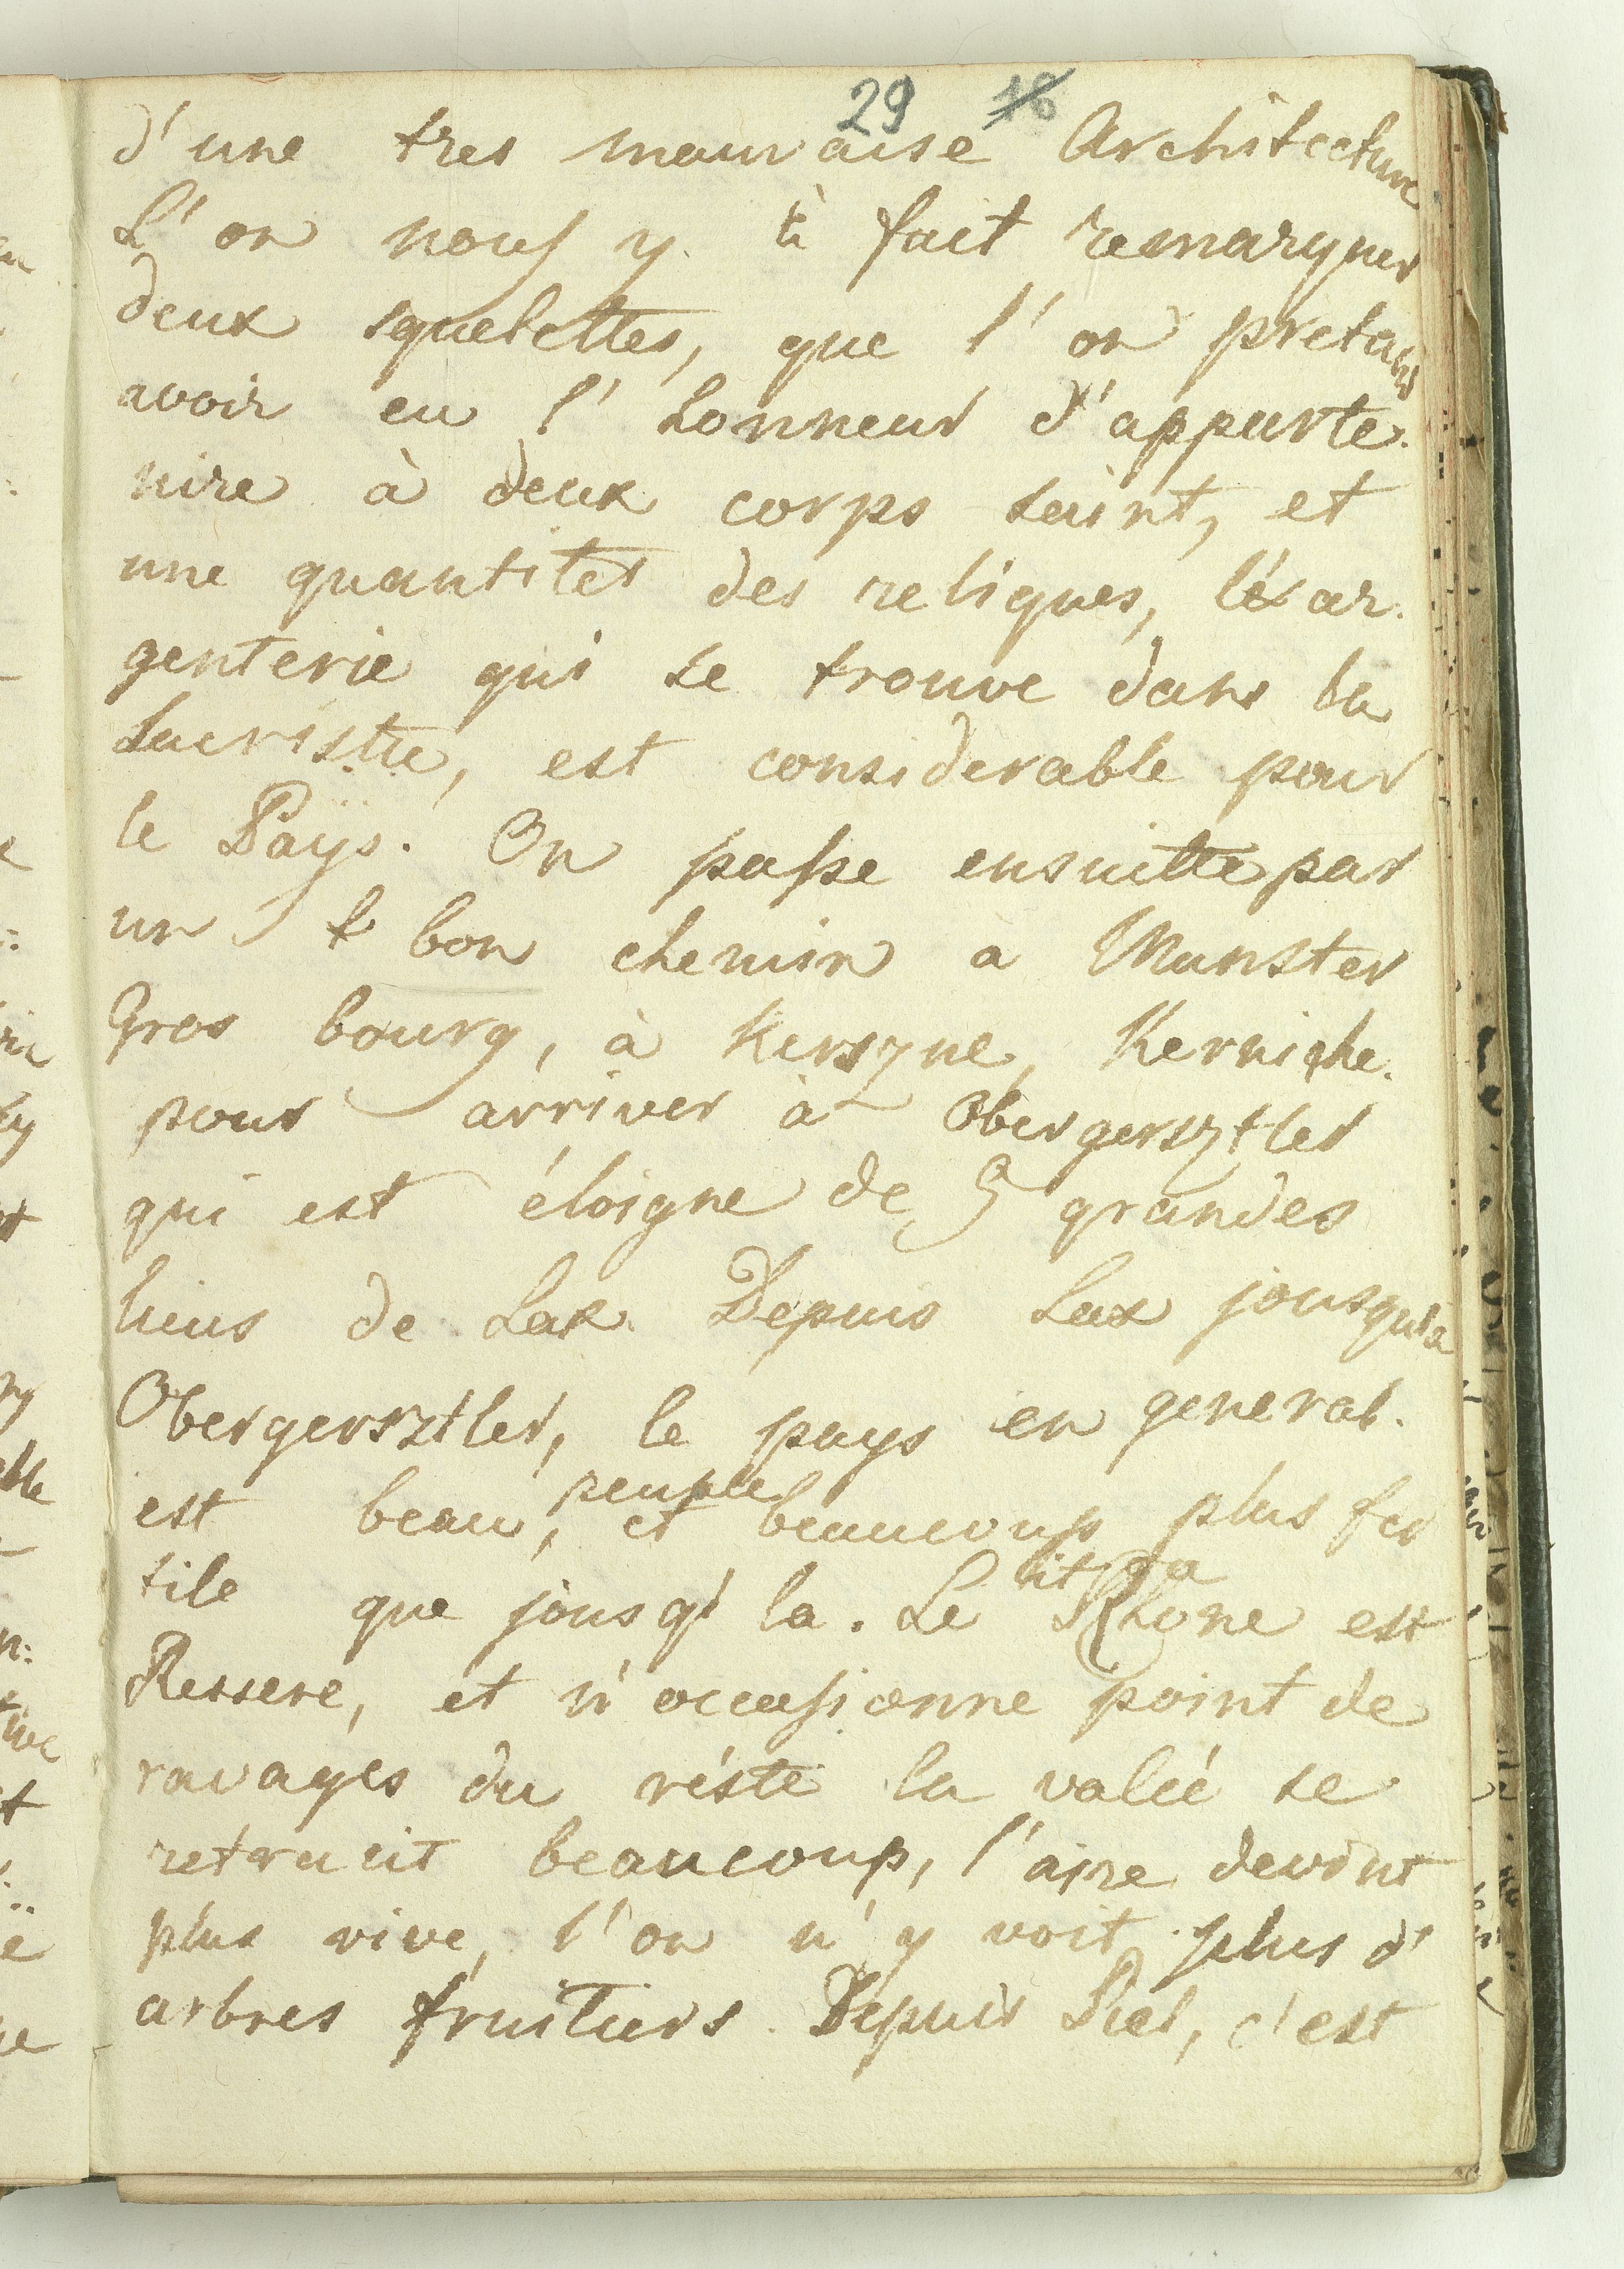 29 18
d'une tres mauvaise Architecture
L'on nous y à fait remarquer
deux squelettes, que l'on pretand
avoir eu l'honneur d'apparte.
nire à deux corps saint, et
une quantites des reliques, l'ar.
genterie qui se trouve dans la
Sacristie, est considerable pour
le Païs. On passe ensuitte par
un bon chemin a Munster
Gros bourg, à Kerszne, Kerniche.
pour arriver à Obergersztler
qui est éloigne de 5 grandes
lieus de Lax. Depuis Lax jousqu'a
Obergersztler, le pays en general.
est beau, peuple et beaucoup plus fer
tile que jousq' la. Le lit du Rhone est
Ressere, et n'occasionne point de
ravages du réste la valeé se
retrecit beaucoup, l'aire devint
plus vive, l'on n'y voit plus d'
arbres fruitiers. Depuis Viel, c'est